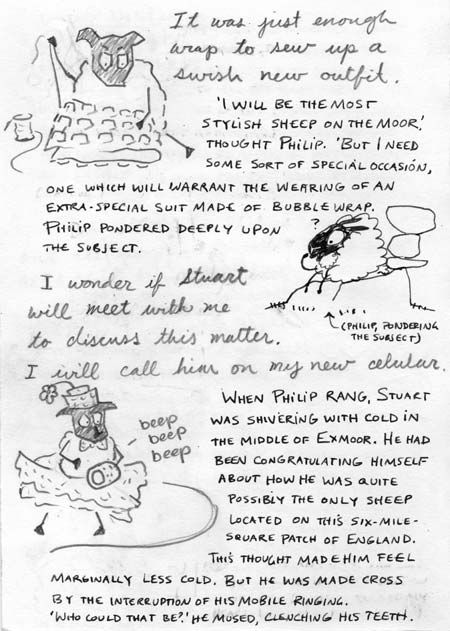 It was just enough
wrap to sew up a
swish new outfit.
'I WILL BE THE MOST
STYLISH SHEEP ON THE MOOR,'
THOUGHT PHILIP. 'BUT I NEED
SOME SORT OF SPECIAL OCCASION,
ONE WHICH WILL WARRANT THE WEARING OF AN
EXTRA-SPECIAL SUIT MADE OF BUBBLE WRAP.
PHILIP PONDERED DEEPLY UPON
THE SUBJECT.
?
(PHILIP, PONDERING
THE SUBJECT)
I wonder if Stuart
will meet with me
to discuss this matter.
I will call him on my new celular.
beep
beep
beep
WHEN PHILIP RANG, STUART
WAS SHIVERING WITH COLD IN
THE MIDDLE OF EXMOOR. HE HAD
BEEN CONGRATULATING HIMSELF
ABOUT HOW HE WAS QUITE
POSSIBLY THE ONLY SHEEP
LOCATED ON THIS SIX-MILE-
SQUARE PATCH OF ENGLAND.
THIS THOUGHT MADE HIM FEEL
MARGINALLY LESS COLD. BUT HE WAS MADE CROSS
BY THE INTERRUPTION OF HIS MOBILE RINGING.
'WHO COULD THAT BE?' HE MUSED, CLENCHING HIS TEETH.